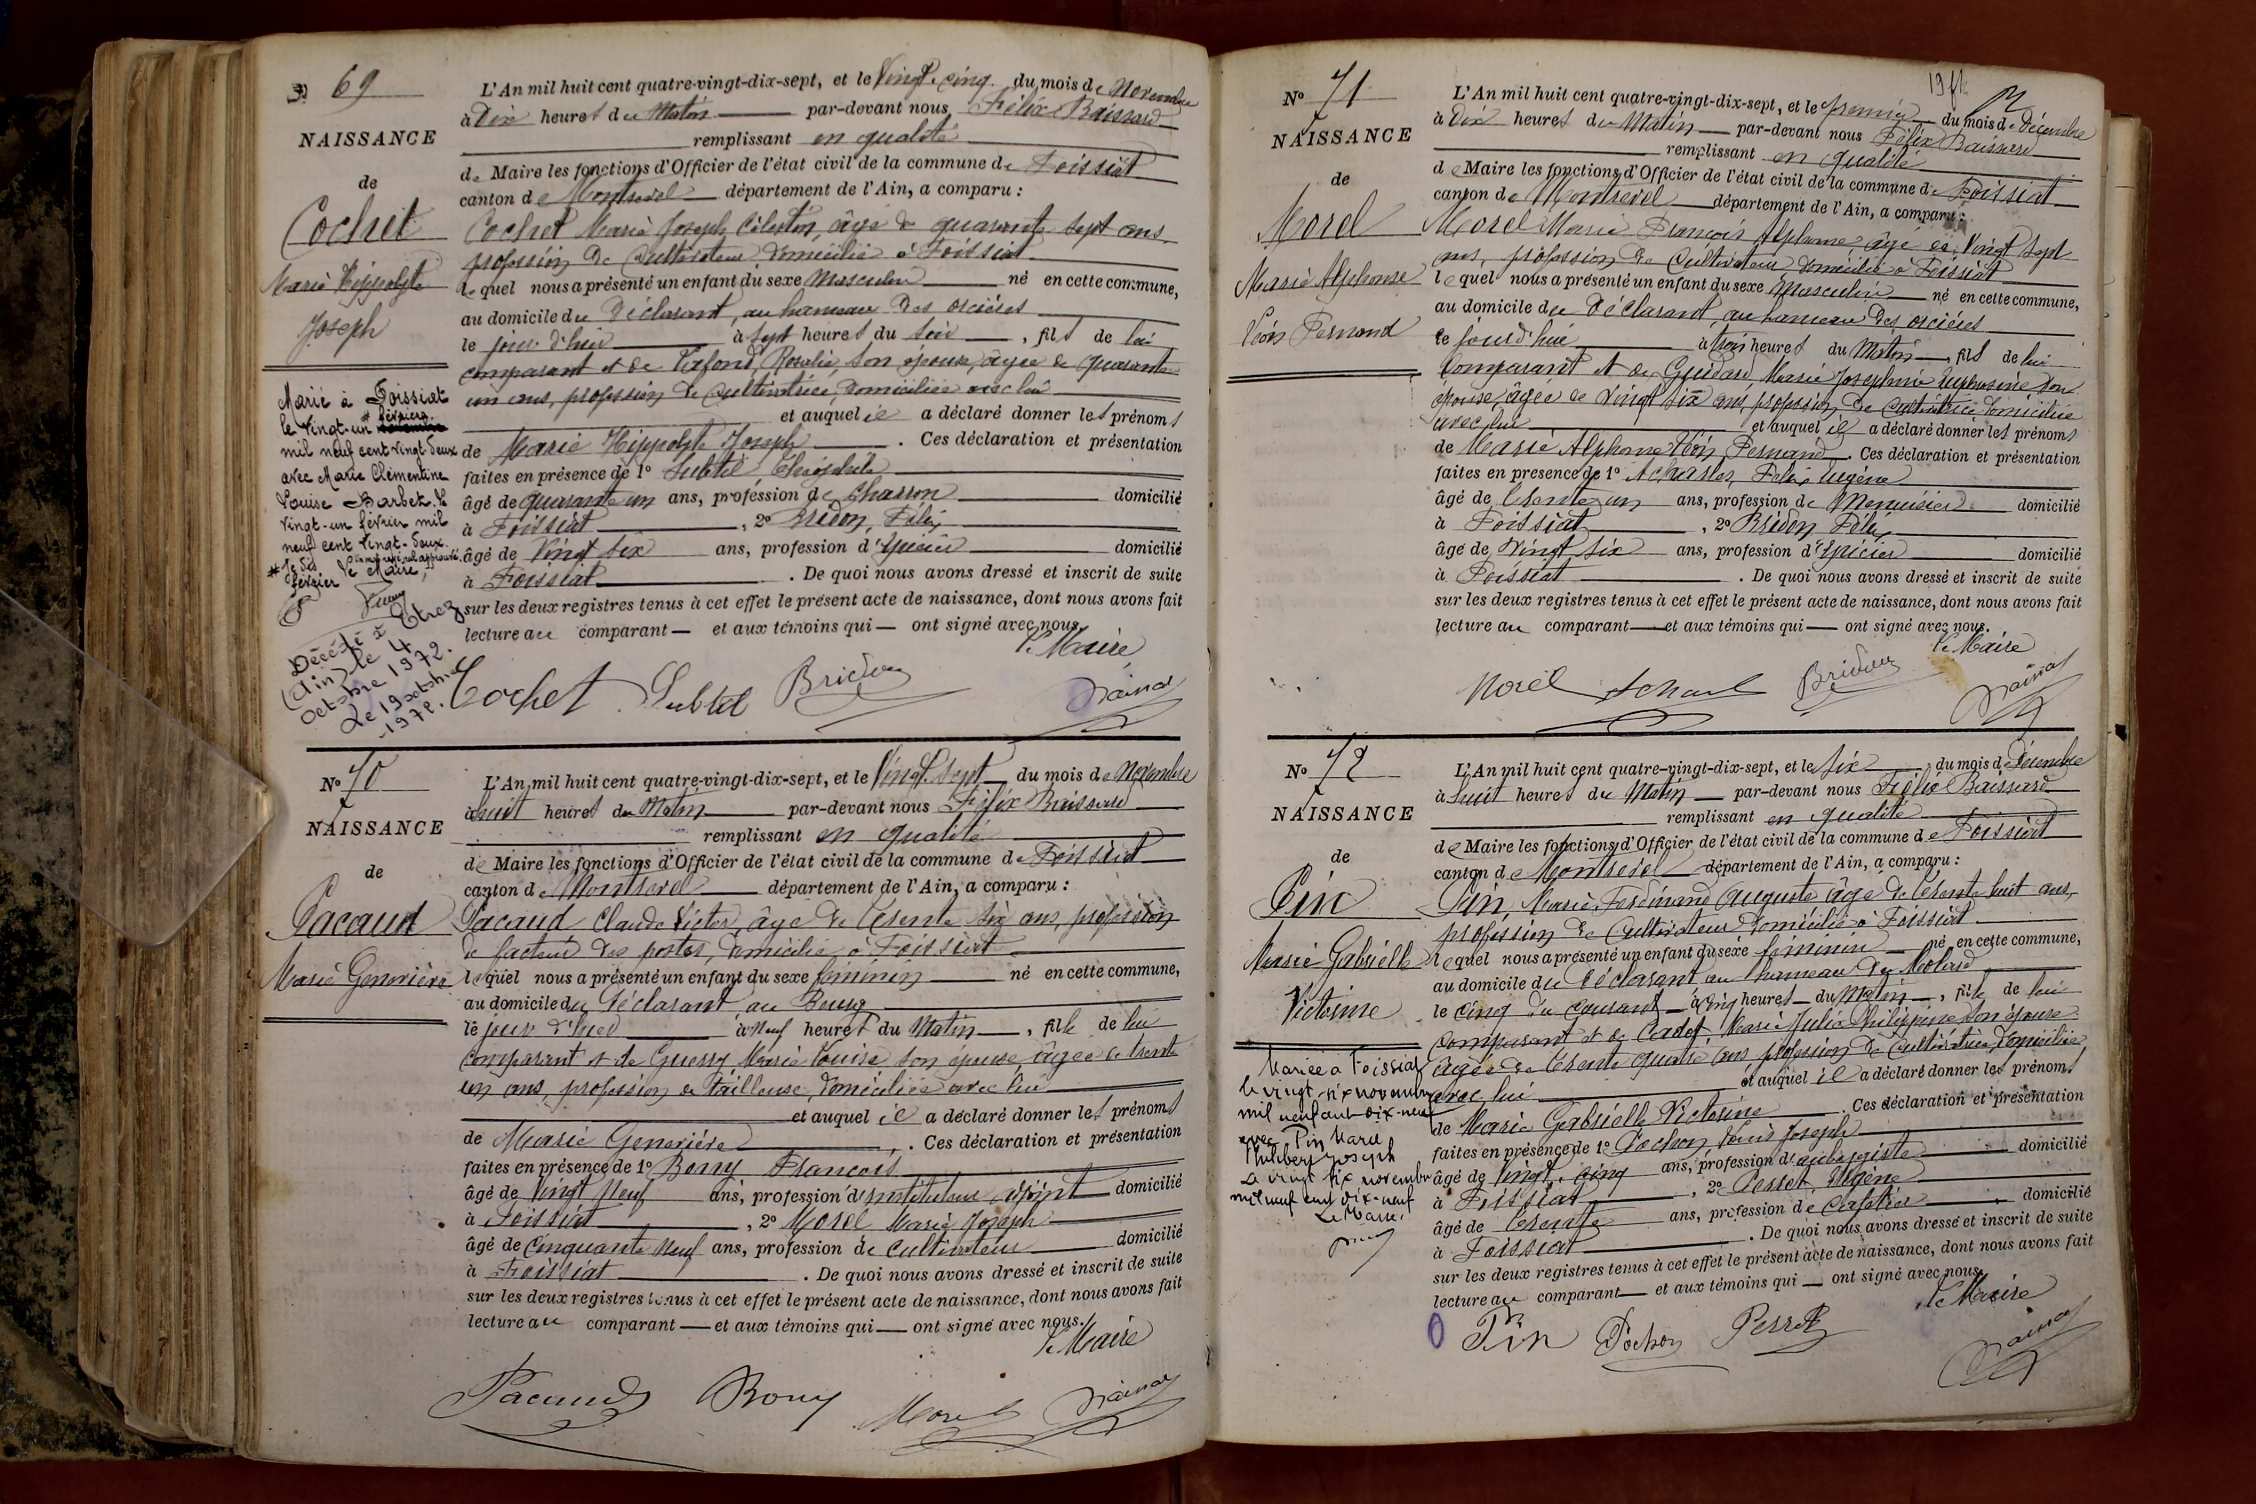 N° 69
NAISSANCE
de
Cochet
Marie Hippolyte
Joseph
Marié à Foissiat
le vingt-un # février
mil neuf cent vingt-deux
avec Marie Clémentine
Louise Barbet. Le
vingt-un février mil
neuf cent vingt-deux.
Le Maire,
Décédé à Etrez
(Ain) le 4
octobre 1972.
Le 19 octobre
1972.
L'An mil huit cent quatre-vingt-dix-sept, et le Vingt-cinq du mois de Novembre
à Dix heures du Matin par-devant nous Félix Baissard
remplissant en qualité
de Maire les fonctions d'Officier de l'état civil de la commune de Foissiat
canton de Montrevel département de l'Ain, a comparu :
Cochet Marie Joseph Célestin, âgé de quarante sept ans
profession de Cultivateur domicilié à Foissiat
lequel nous a présenté un enfant du sexe Masculin né en cette commune,
au domicile du Déclarant, au hameau des orcières
le jour d'hier à Sept heures du Soir, fils de lui
comparant et de Lafond Rosalie, son épouse, âgée de quarante
un ans, profession de Cultivatrice, domiciliée avec lui
et auquel il a déclaré donner les prénoms
de Marie Hippolyte Joseph. Ces déclaration et présentation
faites en présence de 1° Subtil
âgé de quarante un ans, profession de Charron domicilié
à Foissiat, 2° Bridon, Félix,
âgé de Vingt six ans, profession d'Epicier domicilié
à Foissiat. De quoi nous avons dressé et inscrit de suite
sur les deux registres tenus à cet effet le présent acte de naissance, dont nous avons fait
lecture au comparant — et aux témoins qui — ont signé avec nous.
Le Maire
Cochet Subtil Bridon
N° 70
NAISSANCE
de
Pacaud
Marie Geneviève
L'An mil huit cent quatre-vingt-dix-sept, et le Vingt-Sept du mois de Novembre
à huit heures du Matin par-devant nous Félix Baissard
remplissant en qualité
de Maire les fonctions d'Officier de l'état civil de la commune de Foissiat
canton de Montrevel département de l'Ain, a comparu :
Pacaud Claude Victor, âgé de trente six ans, profession
de facteur des postes, domicilié à Foissiat
lequel nous a présenté un enfant du sexe féminin né en cette commune,
au domicile du Déclarant au Bourg
le jour d'hier à Neuf heures du Matin, fille de lui
comparant et de Guerry Marie Louise son épouse, âgée de trente
un ans, profession de Tailleuse, domiciliée avec lui
et auquel il a déclaré donner les prénoms
de Marie Geneviève. Ces déclaration et présentation
faites en présence de 1° Bony François
âgé de Vingt Neuf ans, profession d'instituteur adjoint domicilié
à Foissiat, 2° Morel Marie Joseph
âgé de Cinquante Neuf ans, profession de Cultivateur domicilié
à Foissiat. De quoi nous avons dressé et inscrit de suite
sur les deux registres tenus à cet effet le présent acte de naissance, dont nous avons fait
lecture au comparant — et aux témoins qui — ont signé avec nous.
Le Maire
Pacaud Bony Morel
N° 71
NAISSANCE
de
Morel
Marie Alphonse
Léon Fernand
L'An mil huit cent quatre-vingt-dix-sept, et le premier du mois de Décembre
à Dix heures du Matin par-devant nous Félix Baissard
remplissant en qualité
de Maire les fonctions d'Officier de l'état civil de la commune de Foissiat
canton de Montrevel département de l'Ain, a comparu :
Morel Marie François Alphonse âgé de Vingt Sept
ans, profession de Cultivateur domicilié à Foissiat
lequel nous a présenté un enfant du sexe Masculin né en cette commune,
au domicile du Déclarant, au hameau des orcières
ce jourd'hui à trois heures du Matin, fils de lui
Comparant et de Guidard, Marie Joséphine Euphrosine son
épouse, âgée de Vingt six ans, profession de Cultivatrice domiciliée
avec lui et auquel il a déclaré donner les prénoms
de Marie Alphonse Léon Fernand. Ces déclaration et présentation
faites en présence de 1° Félix Eugène
âgé de trente un ans, profession de Menuisier domicilié
à Foissiat, 2° Bridon Félix
âgé de Vingt six ans, profession d'Epicier domicilié
à Foissiat. De quoi nous avons dressé et inscrit de suite
sur les deux registres tenus à cet effet le présent acte de naissance, dont nous avons fait
lecture au comparant — et aux témoins qui — ont signé avec nous.
Le Maire
Morel Bridon
N° 72
NAISSANCE
de
Pin
Marie Gabrielle
Victorine
Mariée à Foissiat
le vingt-six novembre
mil neuf cent dix-neuf
avec Pin Marie
Philibert Joseph
Le vingt six novembre
mil neuf cent dix-neuf
Le Maire,
L'An mil huit cent quatre-vingt-dix-sept, et le Six du mois de Décembre
à huit heures du Matin par-devant nous Félix Baissard
remplissant en qualité
de Maire les fonctions d'Officier de l'état civil de la commune de Foissiat
canton de Montrevel département de l'Ain, a comparu :
Pin, Marie Ferdinand Auguste âgé de trente huit ans,
profession de Cultivateur domicilié à Foissiat
lequel nous a présenté un enfant du sexe féminin né en cette commune,
au domicile du Déclarant au hameau du Molard
le cinq du courant à cinq heures du Matin, fille de lui
comparant et de Cadet, Marie Julie Philippine son épouse
âgée de trente quatre ans profession de Cultivatrice, domiciliée
avec lui et auquel il a déclaré donner les prénoms
de Marie Gabrielle Victorine. Ces déclaration et présentation
faites en présence de 1° Pochon, Louis Joseph
âgé de Vingt-cinq ans, profession d'aubergiste domicilié
à Foissiat, 2° Perret Eugène
âgé de trente ans, profession de Cafetier domicilié
à Foissiat. De quoi nous avons dressé et inscrit de suite
sur les deux registres tenus à cet effet le présent acte de naissance, dont nous avons fait
lecture au comparant — et aux témoins qui — ont signé avec nous.
Le Maire
Pin Pochon Perret